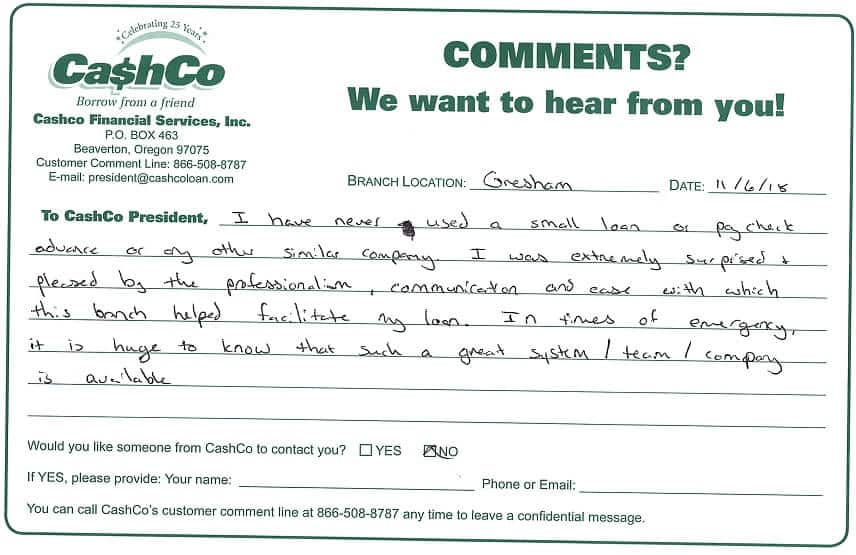 Celebrating 25 Years
Ca$hCo
Borrow from a friend
Cashco Financial Services, Inc.
P.O. BOX 463
Beaverton, Oregon 97075
Customer Comment Line: 866-508-8787
E-mail: president@cashcoloan.com
COMMENTS?
We want to hear from you!
BRANCH LOCATION: Gresham DATE: 11/6/18
To CashCo President, I have never used a small loan or paycheck
advance or any other similar company. I was extremely surprised +
pleased by the professionalism, communication and ease with which
this branch helped facilitate my loan. In times of emergency,
it is huge to know that such a great system / team / company
is available
Would you like someone from CashCo to contact you? YES NO
If YES, please provide: Your name: Phone or Email:
You can call CashCo's customer comment line at 866-508-8787 any time to leave a confidential message.